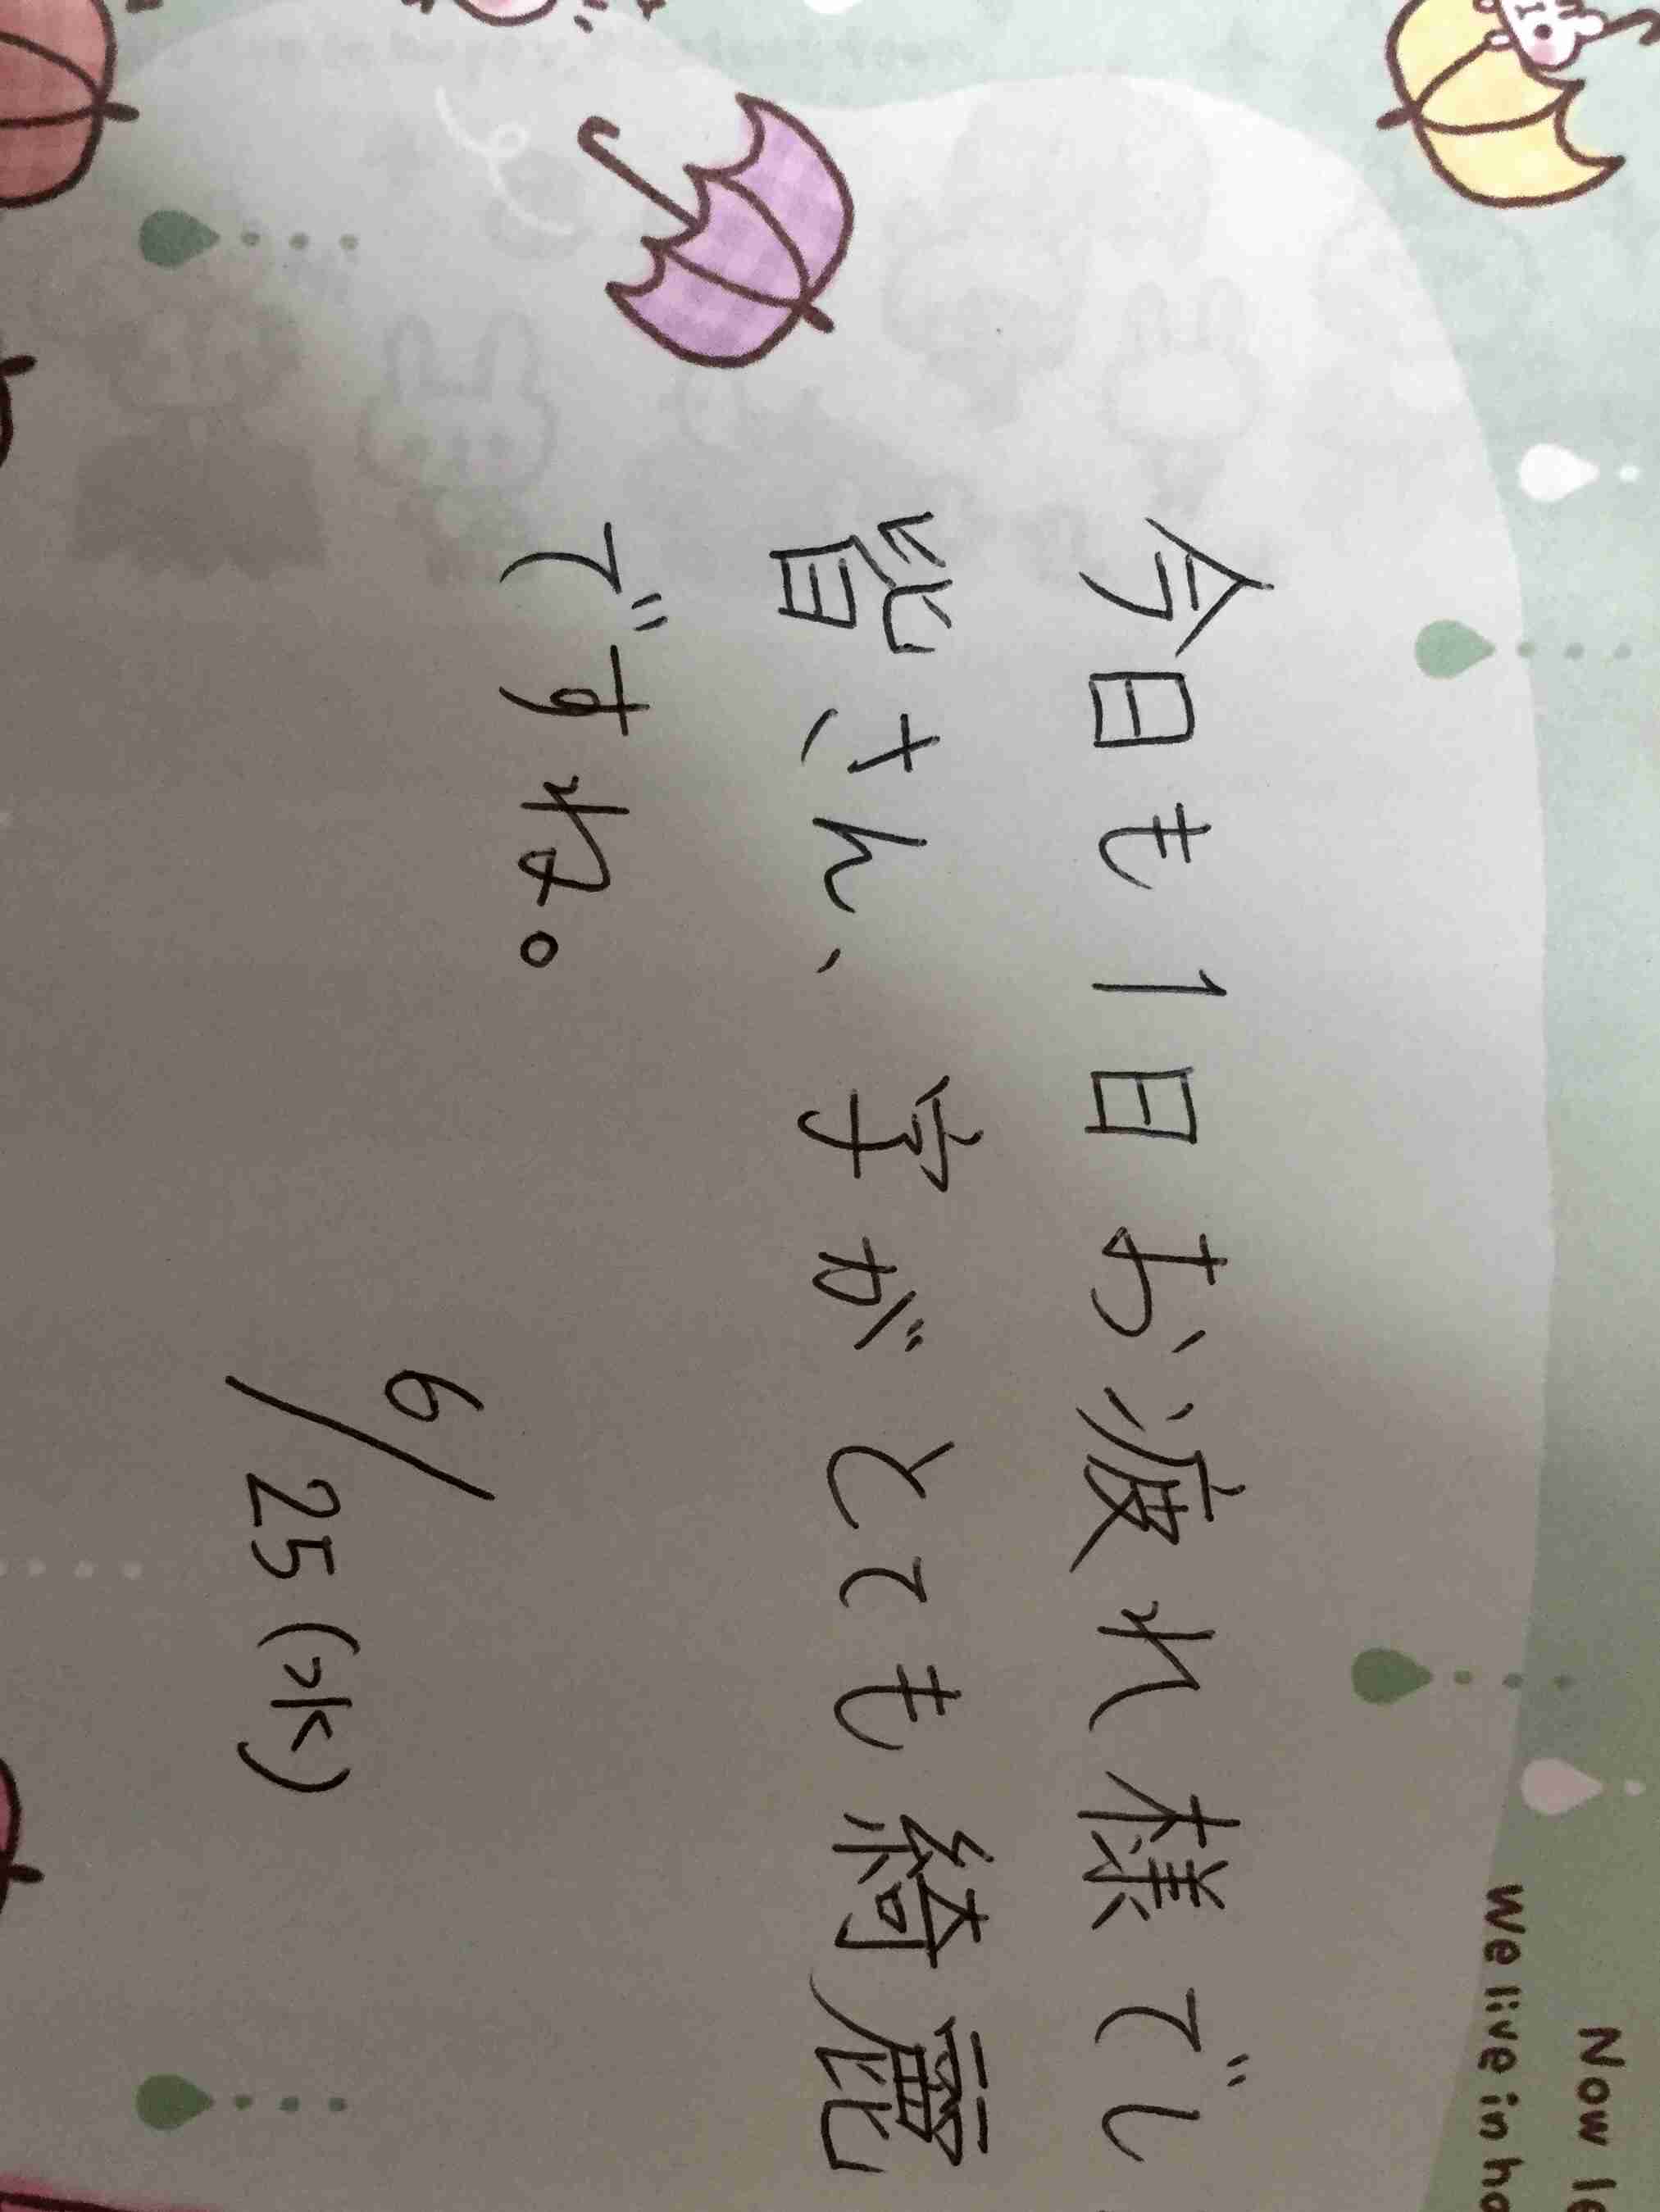 Now le
we live in ho
今日も1日お疲れ様でし
皆さん、字がとても綺麗
ですね。
6/25(水)